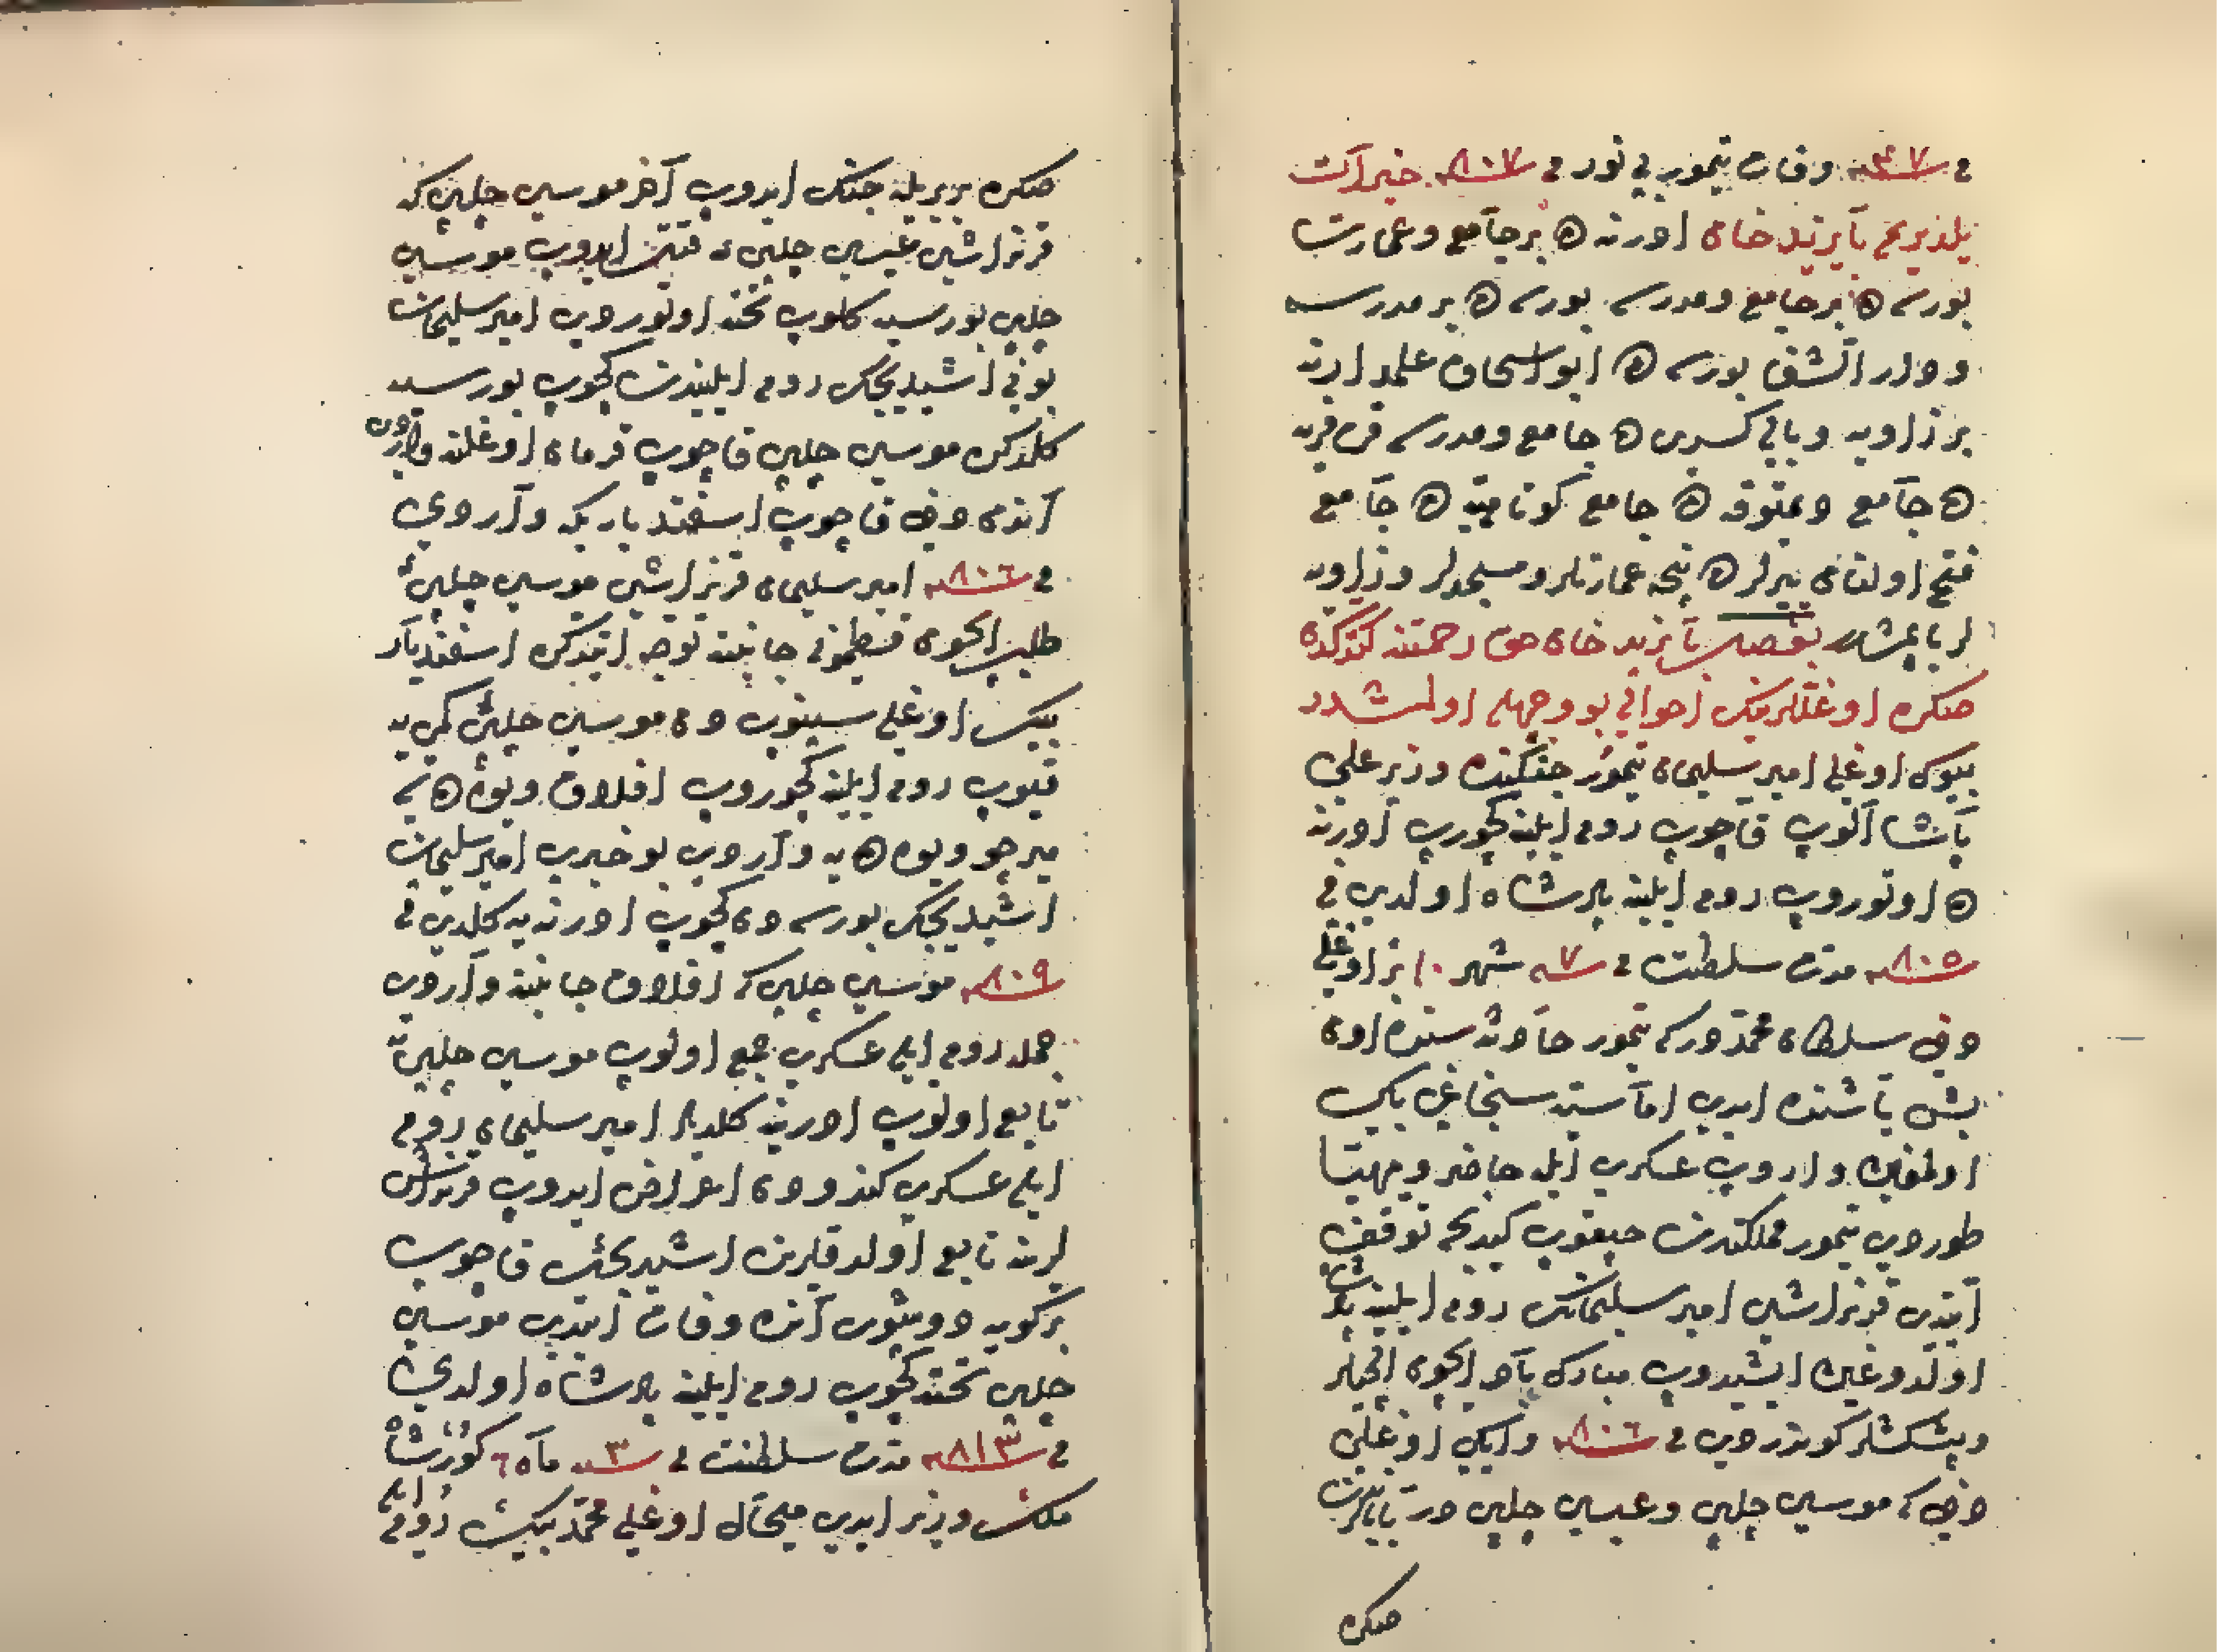 في سنه ٣٧ وفات تيمور بي نور في سنه ٨٠٧ خيرات
يلديريم بايزيد خان ادرنه ده بر جامع وعمارت
بورسه ده بر جامع ومدرسه بورسه ده بر مدرسه
ودار الشفا بورسه ده ابو اسحاق علمدارنه
بر زاويه وبالي كسرى ده جامع ومدرسه قره فريه
ده جامع وديمتوقه ده جامع كوتاهيه ده جامع
فتح اولنان يرلر ده نيجه عمارتلر ومسجدلر وزاويه
لر يابمشدر بايزيد خان حق رحمتنه كتدكدن
صكره اوغللرينك احوالي بو وجهله اولمشدر
بيوك اوغلى امير سليمان تيمور جنكنده وزير على
پاشا الوب قاچوب روم ايلنه كچوب ادرنه
ده اوتوروب روم ايلنه پادشاه اولدى في
سنه ٨٠٥ مدت سلطنت في سنه ٧ شهر ١٠ بر اوغلى
دخى سلطان محمددر كه تيمور حادثه سنده اون
بش ياشنده ايدى اماسيه سنجاغى بك
اولمغين واروب عسكرى ايله حاضر ومهيا
طوروب تيمور مملكتدن چيقوب كيدنجه توقف
ايتدى قرنداشى امير سليمانك روم ايلينه پادشاه
اولدوغين ايشيدوب مبارك باد ايچون ايلچيلر
وپيشكشلر كوندردى في سنه ٨٠٦ وايكى اوغلى
دخى كه موسى چلبى وعيسى چلبى در بابالرندن
صكره
صكره بربريله جنك ايدوب آخر موسى چلبى كه
قرنداشى عيسى چلبى يى قتل ايدوب موسى
چلبى بورسيه كلوب تخته اوتوردى امير سليمان
بونى اشيديجك روم ايليندن كچوب بورسيه
كلدكده موسى چلبى قاچوب قرمان اوغلنه واردى
آندن دخى قاچوب اسفنديار بكه واردى
في سنه ٨٠٦ امير سليمان قرنداشى موسى چلبى
طلب ايچون قسطمونى جانبنه توجه ايتدكده اسفنديار
بيك اوغلى سينوبدن موسى چلبى كمى يه
قيوب روم ايلنه كچوروب افلاق ويوه ده سى
ميرجو ويوه ده يه واردى بو خبرى امير سليمان
اشيديجك بورسه دن كچوب ادرنه يه كلدى في
سنه ٨٠٩ موسى چلبى كه افلاق جانبنه واردى
جمله روم ايلى عسكرى جمع اولوب موسى چلبى يه
تابع اولوب ادرنيه كلديلر امير سليمان روم
ايلى عسكرى كندودن اعراض ايدوب قرنداش
لرينه تابع اولدقلرين اشيديجك قاچوب
بر كويه دوشوب آنده وفات ايتدى موسى
چلبى تخته كچوب روم ايلينه پادشاه اولدى
في سنه ٨١٣ مدت سلطنت في سنه ٣ ماه ٦ كور شاه
ملك وزير ايدى ميخال اوغلى محمد بيك روم ايلى